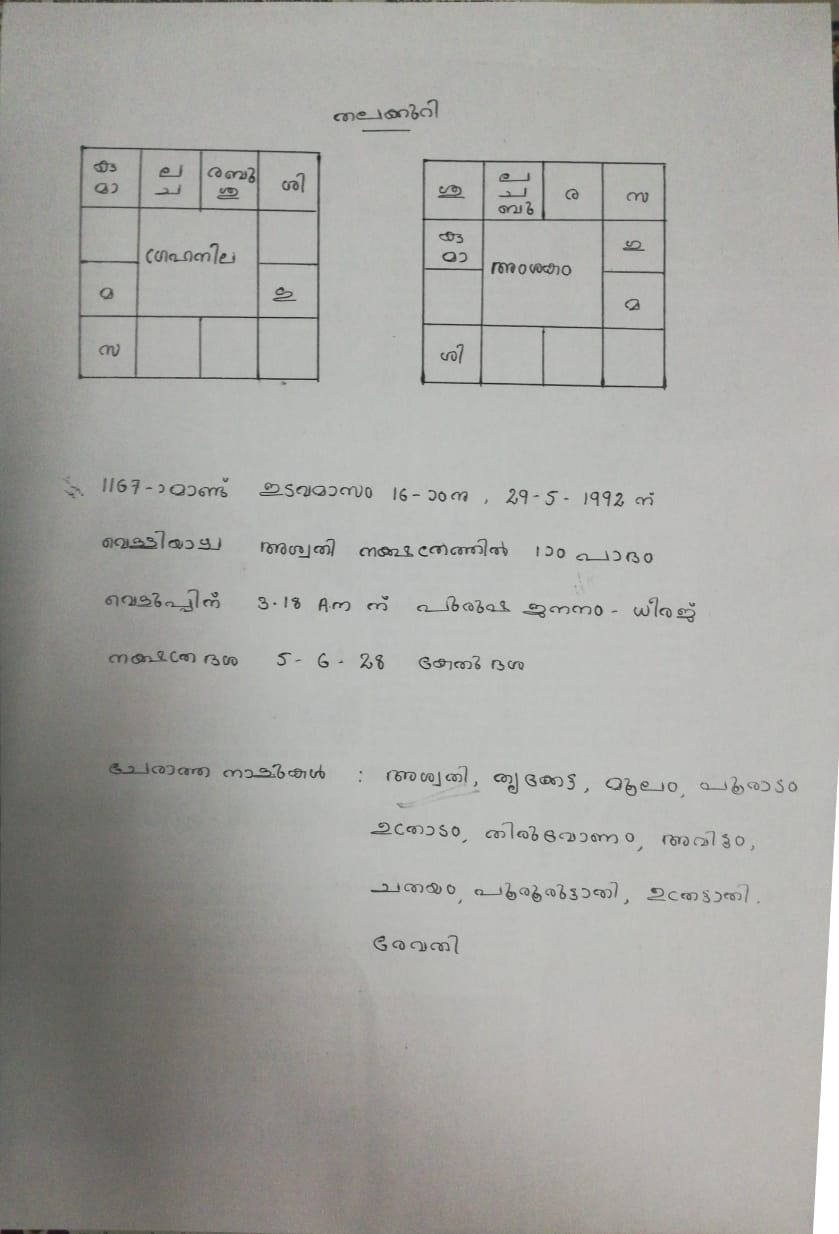 തലക്കുറി
കു ല രബു ശി
മാ ച ശു
ഗ്രഹനില
മ ഗു
സ
ശു ല ര സ
ച
ബു
കു ഗു
മാ അംശകം
മ
ശി
1167-ാമാണ്ട് ഇടവമാസം 16-ാംനു, 29-5-1992 ന്
വെള്ളിയാഴ്ച അശ്വതി നക്ഷത്രത്തിൽ 1ാം പാദം
വെളുപ്പിന് 3.18 A.m ന് പുരുഷ ജനനം - ധീരജ്
നക്ഷത്ര ദശ 5-6-28 കേതു ദശ
ചേരാത്ത നാളുകൾ : അശ്വതി, തൃക്കേട്ട, മൂലം, പൂരാടം
ഉത്രാടം, തിരുവോണം, അവിട്ടം,
ചതയം, പൂരൂരുട്ടാതി, ഉത്രട്ടാതി.
രേവതി